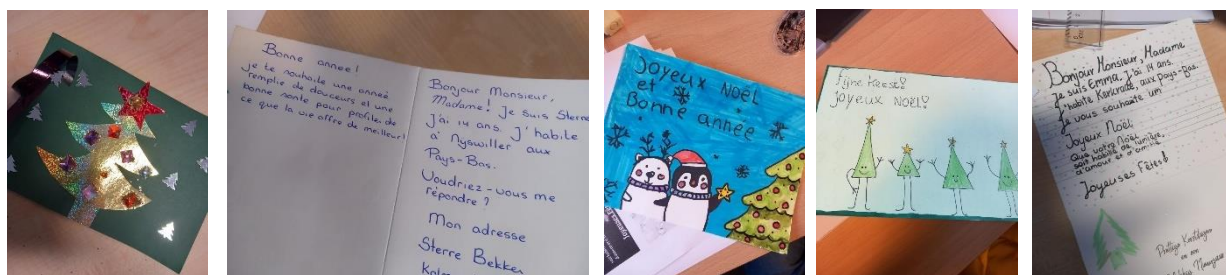 Bonne annee!
je te souhaite une année
remplie de douceurs et une
bonne sante pour profiter de
ce que la vie offre de meilleur!
Bonjour Monsieur,
Madame! Je suis Sterre
J'ai 14 ans. J'habite
à Nyswiller aux
Pays-Bas.
Voudriez-vous me
répondre?
Mon adresse
Sterre Bekker
Joyeux Noël
et
Bonne année
Fijne Feest!
Joyeux Noël!
Bonjour Monsieur, Madame
Je suis Emma. J'ai 14 ans.
J'habite Kerkrade, aux Pays-Bas.
Je vous souhaite un
Joyeux Noël.
Que votre Noël
soit habité de lumière,
d'amour et d'amitié
Joyeuses Fêtes!
Prettige Kerstdagen
en een